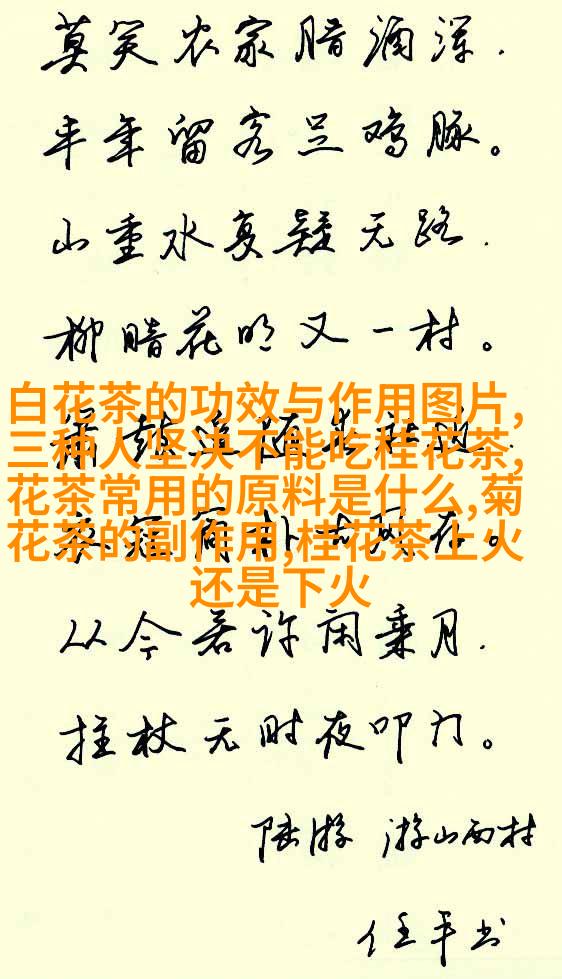 莫笑农家腊酒浑.
丰年留客足鸡豚。
山重水复疑无路.
柳暗花明又一村。
白花茶的功效与作用图片,
三种人坚决不能吃桂花茶,
花茶常用的原料是什么,菊
花茶的副作用,桂花茶上火
还是下火
从今若许闲乘月.
拄杖无时夜叩门。
陆游 游山西村
任平书